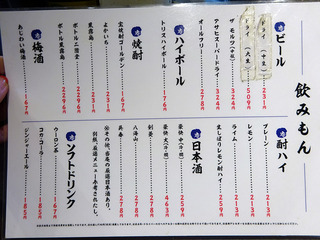 飲みもん
ビール
ドライ(中生) 231円
ドライ(大生) 509円
ザ モルツ(中瓶) 324円
アサヒスーパードライ 324円
オールフリー 278円
ハイボール
トリスハイボール 176円
焼酎
宝焼酎ゴールデン 167円
よかいち 231円
黒霧島 231円
ボトル二階堂 2296円
ボトル黒霧島 2296円
梅酒
あじわい梅酒 167円
酎ハイ
プレーン 213円
レモン 213円
ライム 213円
ウーロン 213円
生しぼりレモン酎ハイ 259円
日本酒
豪快 259円
豪快 463円
剣菱 278円
八海山 278円
呉春 278円
ソフトドリンク
ウーロン茶 167円
コカ・コーラ 185円
ジンジャエール 185円